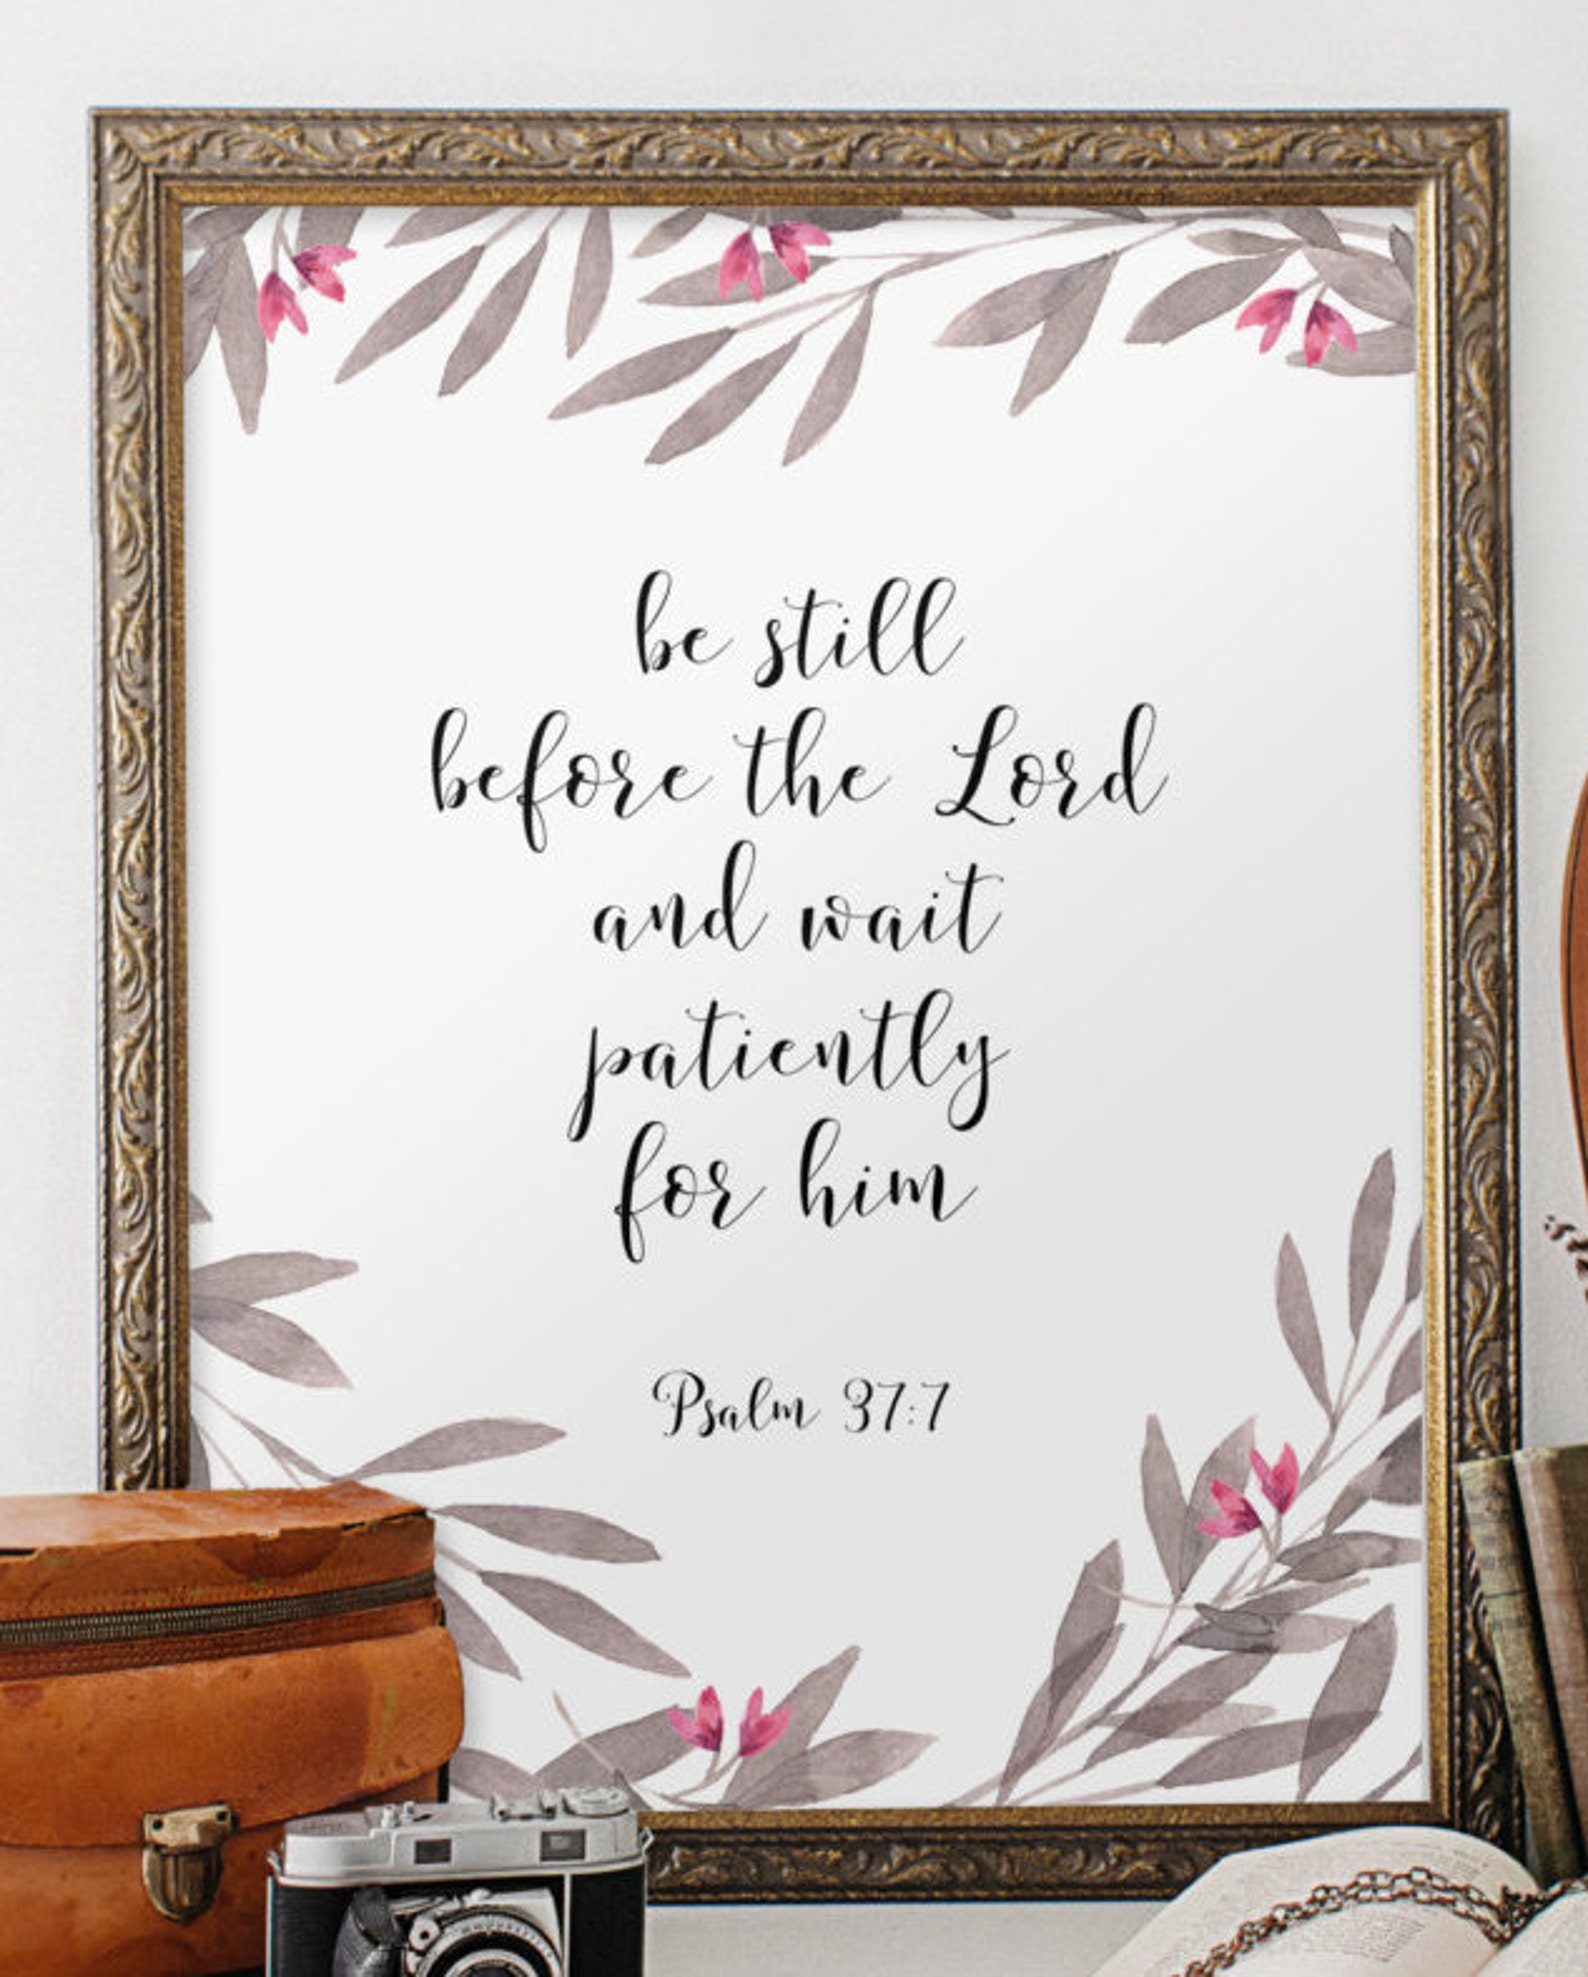 be still
before the Lord
and wait
patiently
for him
Psalm 37:7